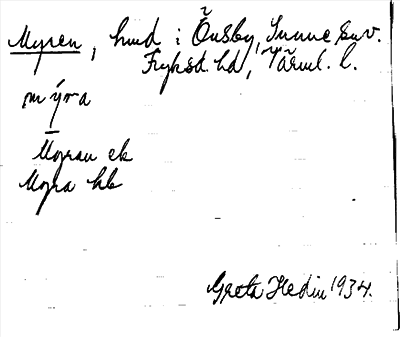 Myren, hmd i Öusby, Sunne snv.
Fryksd. hd, Värml. l.
mýra
Myran ek
Myra hb
Greta Hedin 1934.